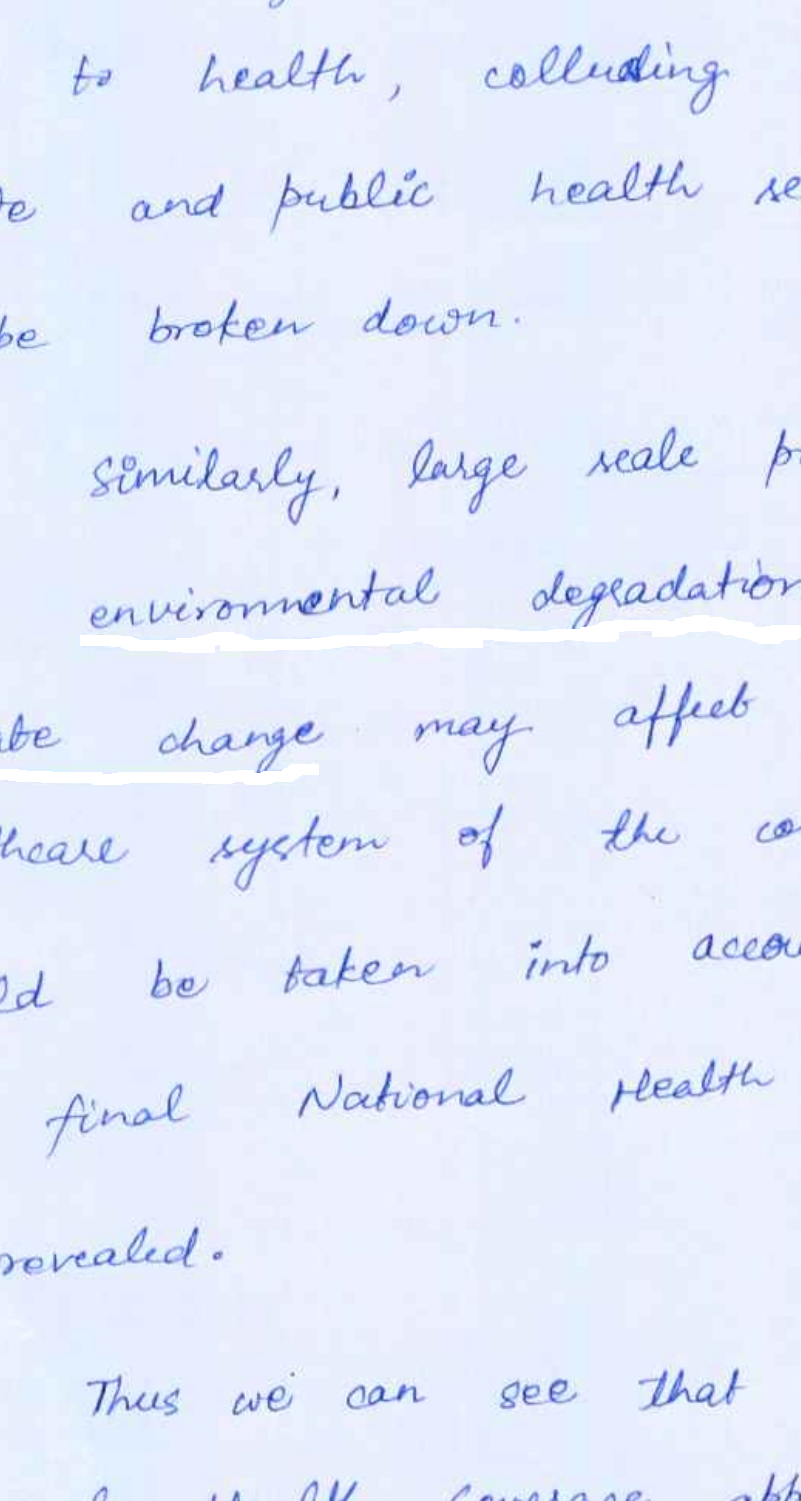 to health, colluding
and public health se
be broken down.
Similarly, large scale p
environmental degradation
change may affect
hcare system of the co
be taken into accou
final National Health
revealed.
Thus we can see that
coverage